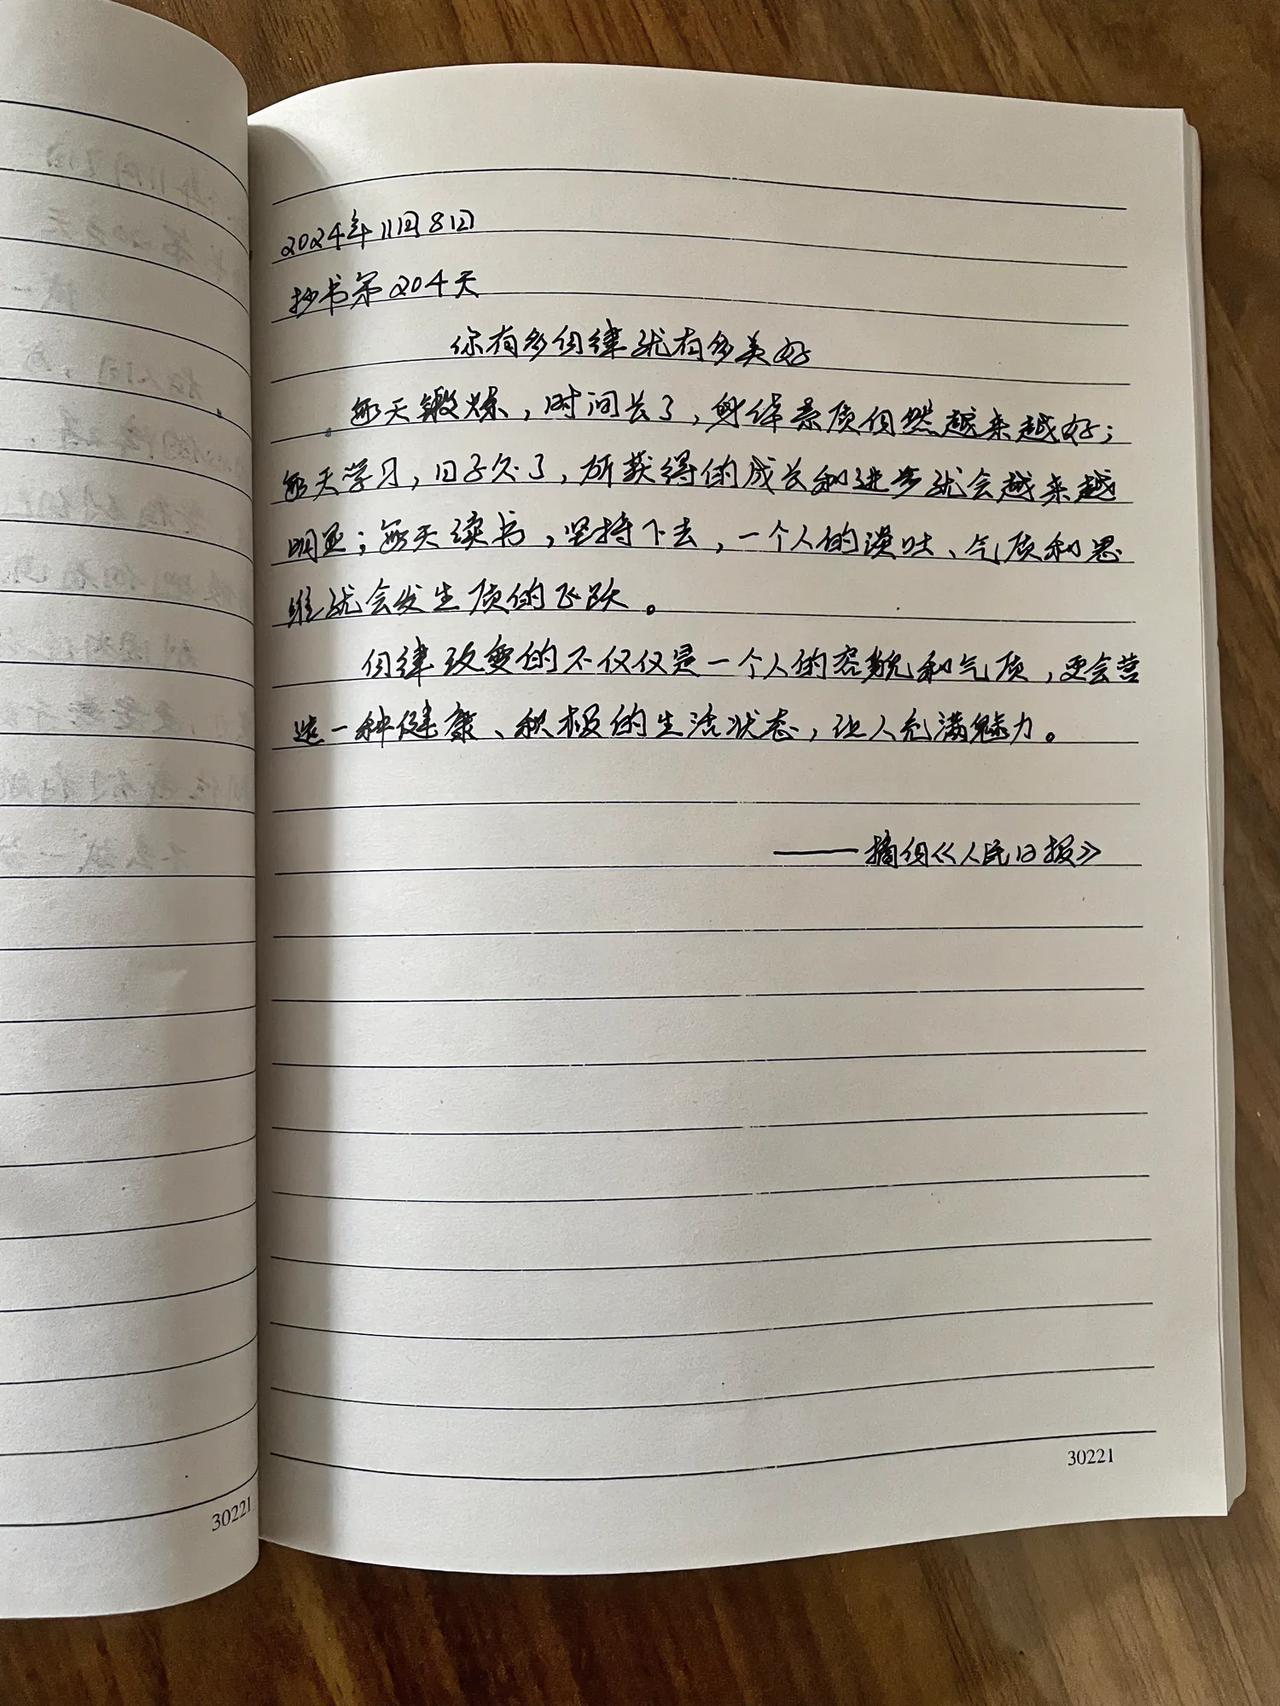 2024年11月8日
抄书第204天
你有多自律就有多美好
每天锻炼，时间长了，身体素质自然越来越好；
每天学习，日子久了，所获得的成长和进步就会越来越
明显；每天读书，坚持下去，一个人的谈吐、气质和思
维就会发生质的飞跃。
自律改变的不仅仅是一个人的容貌和气质，更会营
造一种健康、积极的生活状态，让人充满魅力。
——摘自《人民日报》
30221
30221